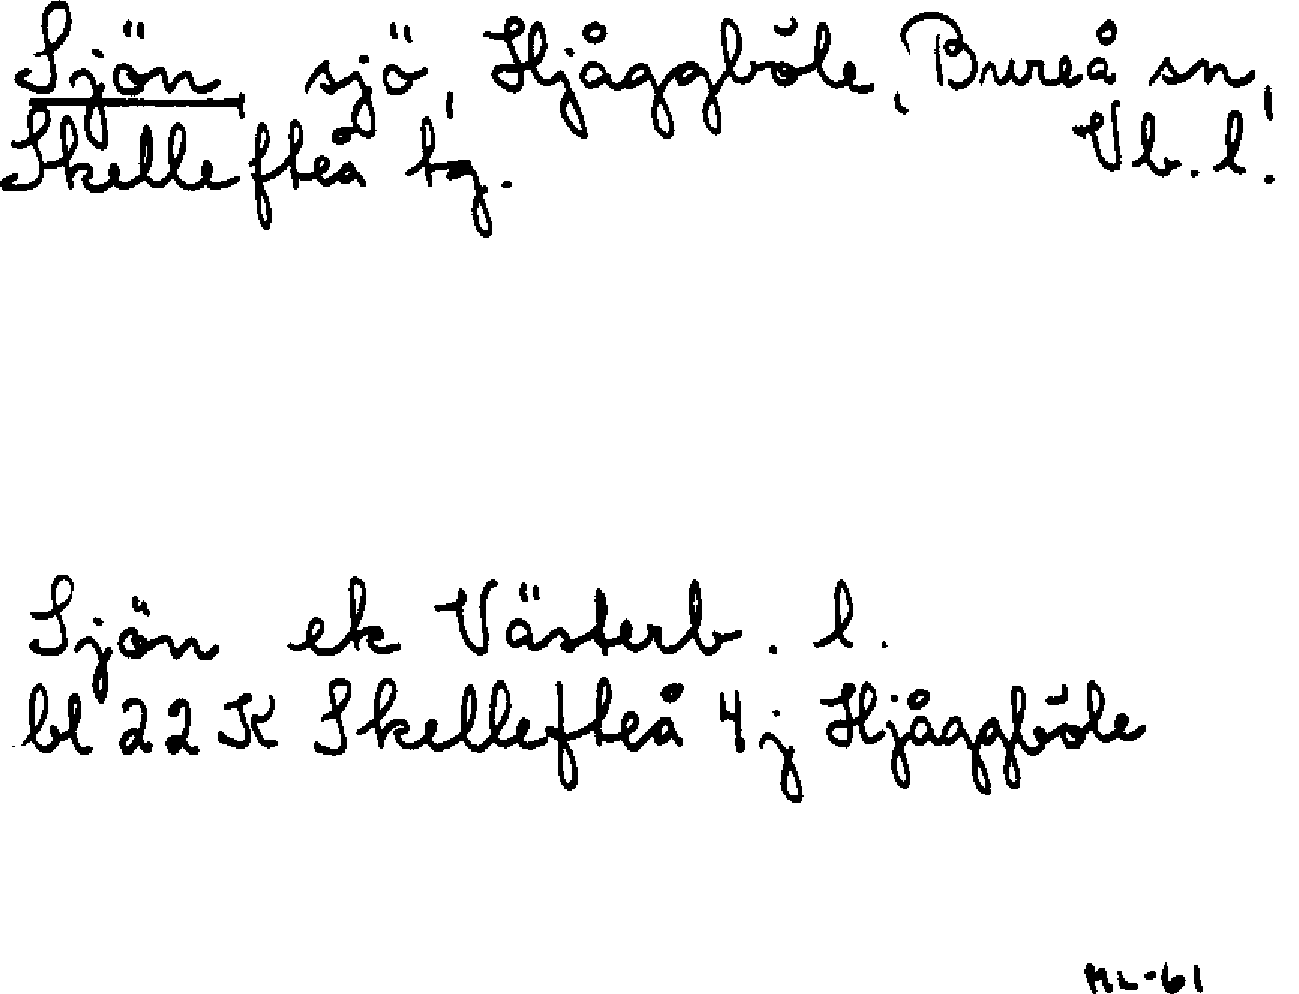 Sjön sjö, Hjåggböle, Bureå sn,
Skellefteå tg. Vb. l.
Sjön ek Västerb. l.
bl 22 K Skellefteå 4 j Hjåggböle
ML-61